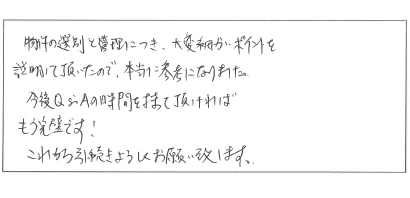 物件の選別と管理につき、大変細かいポイントを
説明して頂いたので、本当に参考になりました。
今後Q&Aの時間を持って頂ければ
もう完璧です!
これからも引続きよろしくお願い致します。